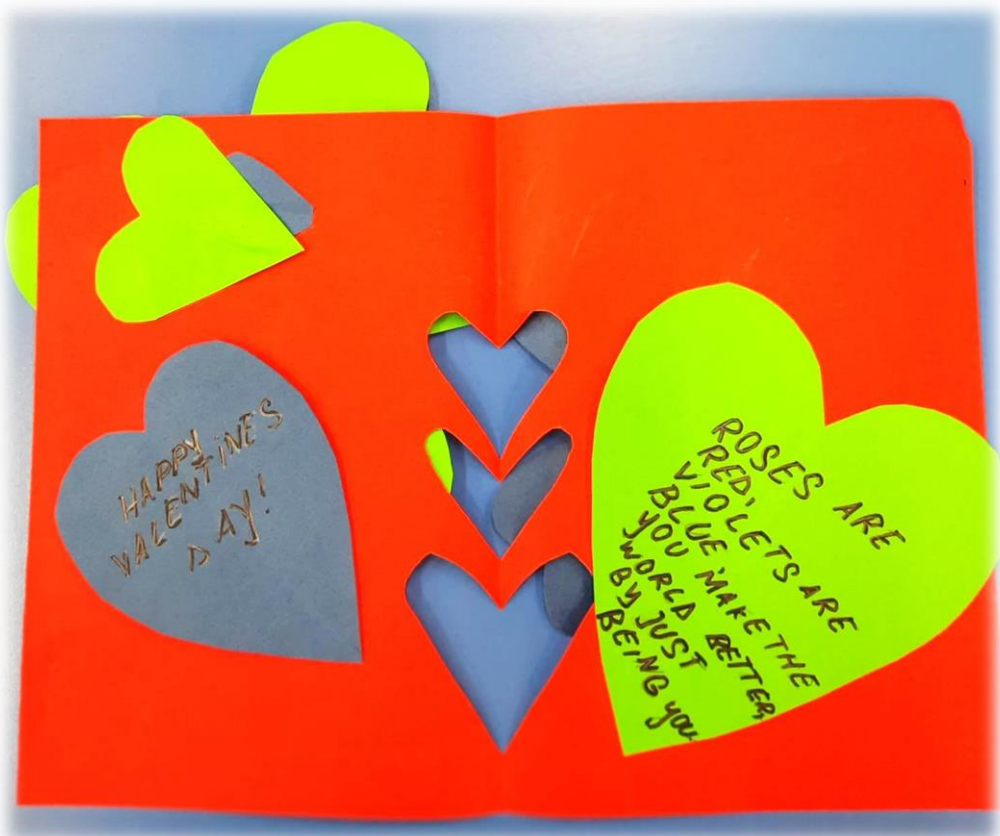 HAPPY
VALENTINES
DAY!
ROSES ARE
RED,
VIOLETS ARE
BLUE MAKE THE
YOU
WORLD BETTER,
BY JUST
BEING YOU